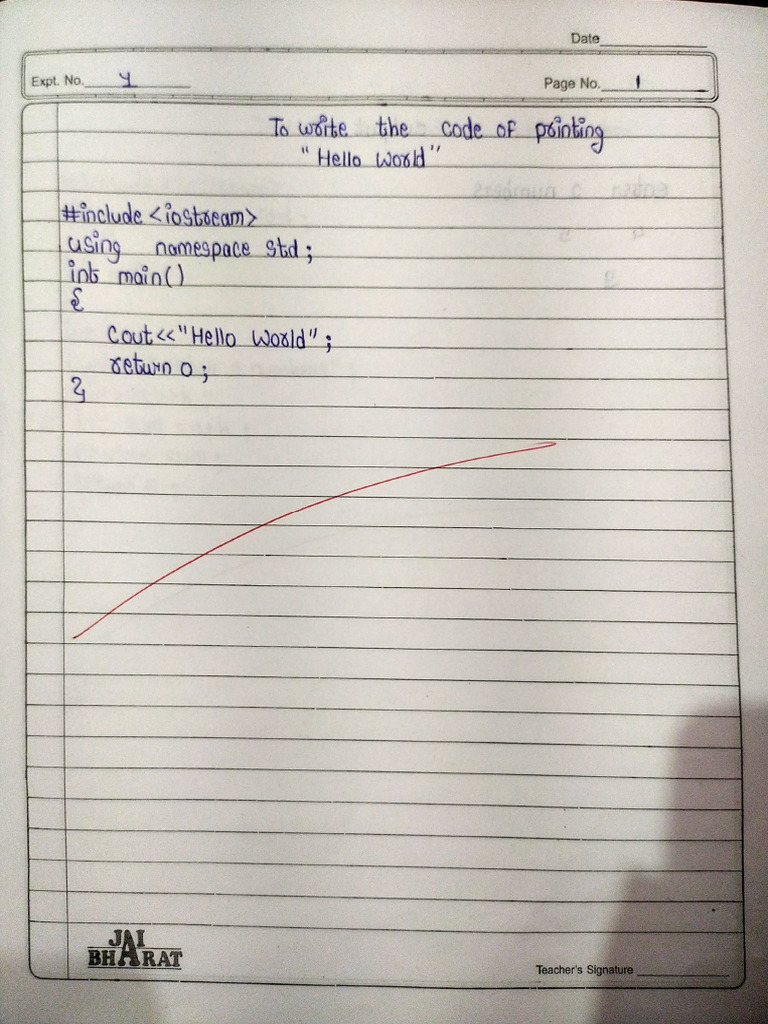 Date
Expt. No. 1
Page No. 1
To write the code of printing
"Hello World"
#include <iostream>
using namespace std;
int main()
{
cout<<"Hello World";
return 0;
}
JAI
BHARAT
Teacher's Signature